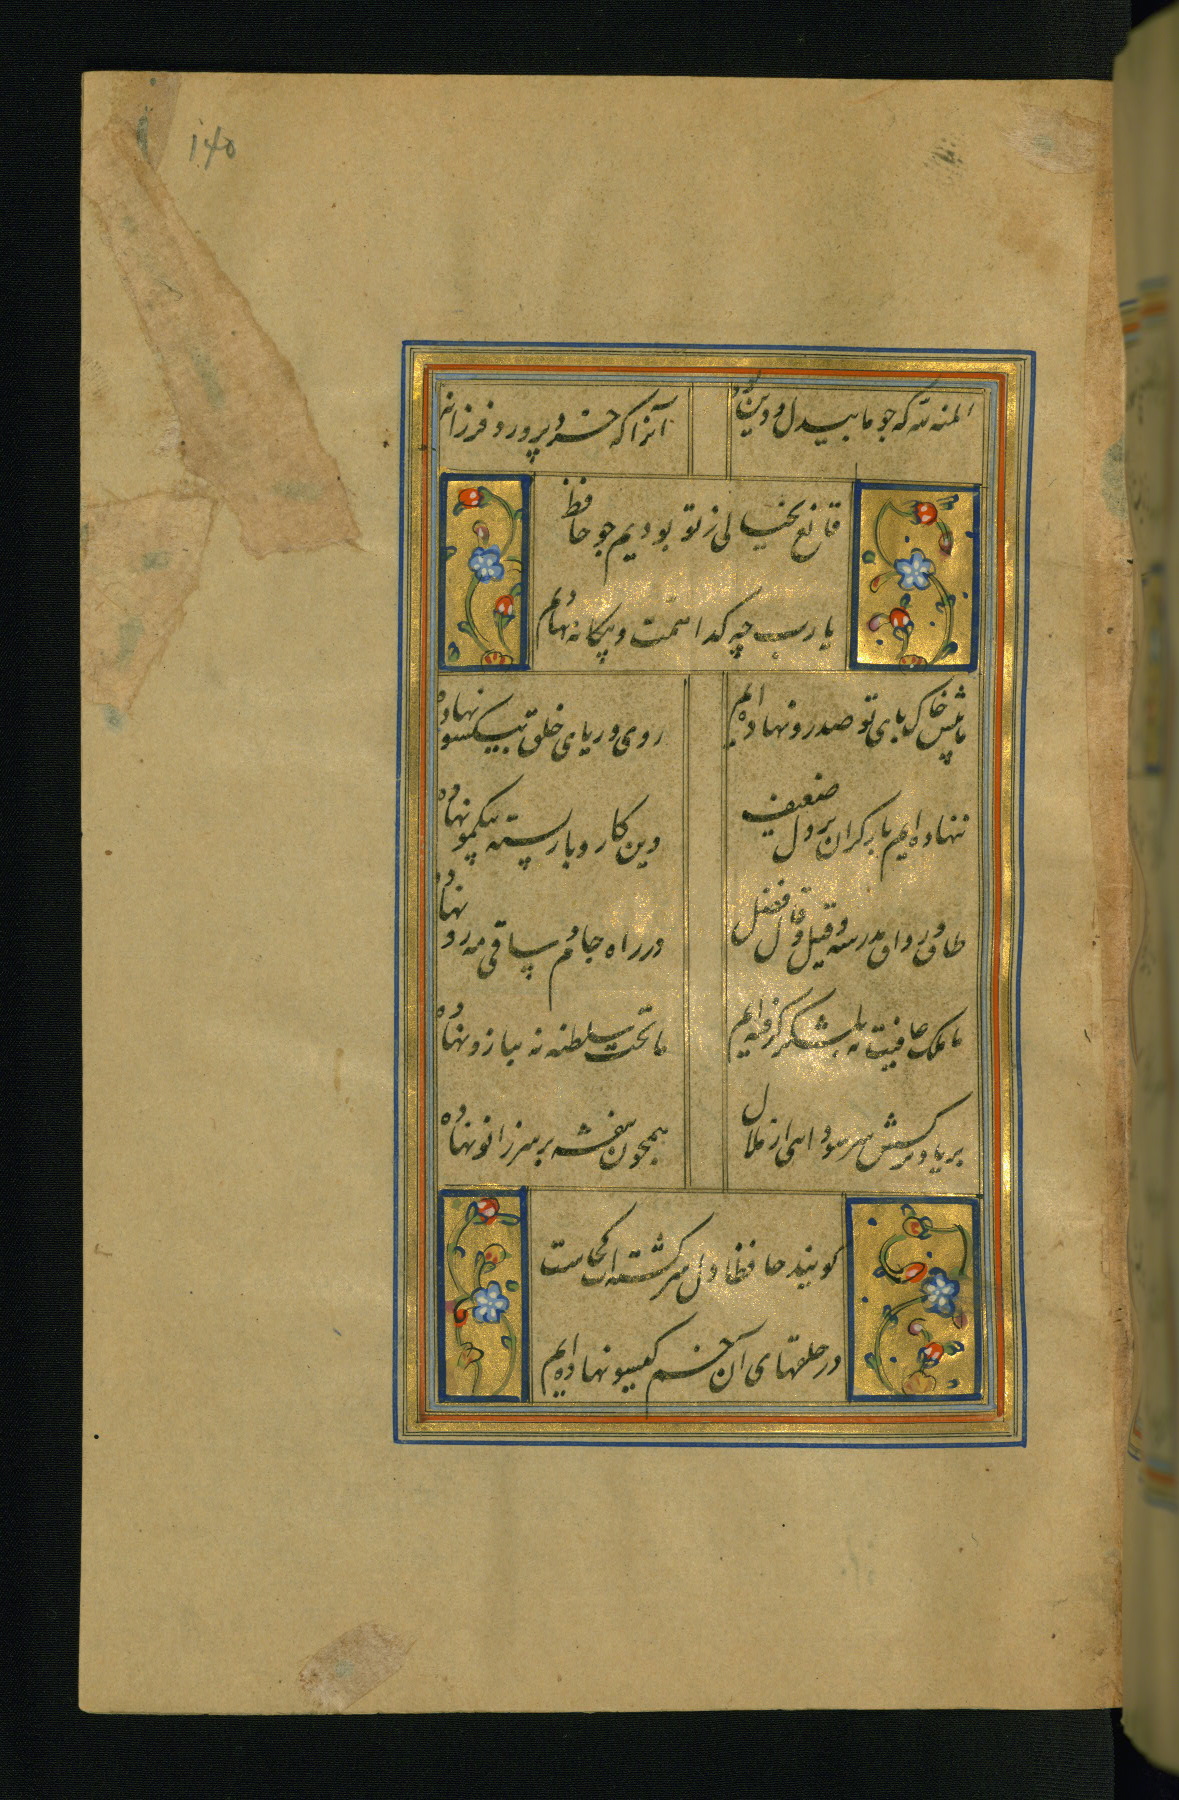 ۱۴۵
المنه لله که چو ما بیدل و دین بود
آنرا که خرد پرور و فرزانه
قانع بخیالی ز تو بودیم چو حافظ
یا رب چه گدا همت و بیگانه نهادیم
ما پیش خاک پای تو صد رو نهاده ایم
روی و ریای خلق بیکسو نهاده
ننهاده ایم بار گران بر دل ضعیف
وین کار و بار بسته بیکمو نهاده
طاق و رواق مدرسه و قیل و قال فضل
در راه جام و ساقی مه رو نهاده
ما ملک عافیت نه بلشکر گرفته ایم
ما تخت سلطنه نه ببازو نهاده
بر یاد سرکش سر سودایی از ملال
همچون بنفشه بر سر زانو نهاده
کویند حافظا دل سرکشته ات کجاست
در حلقهای آن خم کیسو نهاده ایم